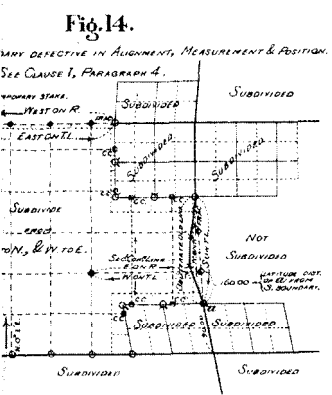 Fig. 14.
ARY DEFECTIVE IN ALIGNMENT, MEASUREMENT & POSITION.
SEE CLAUSE 1, PARAGRAPH 4.
PORARY STAKE.
WEST ON R.
EAST ON T.L.
SUBDIVIDED
SUBDIVIDED
SUBDIVIDED
SUBDIVIDED
C.C.
C.C.
C.C.
C.C.
SUBDIVIDE
FROM
TO N., & W. TO E.
NOT
SUBDIVIDED
SEC. COR. LINK
E. ON R.
W. ON T.L.
160.00
LATITUDE DIST.
OF EL. FROM
S. BOUNDARY.
C.C.
C.C.
C.C.
SUBDIVIDED
SUBDIVIDED
SUBDIVIDED
SUBDIVIDED